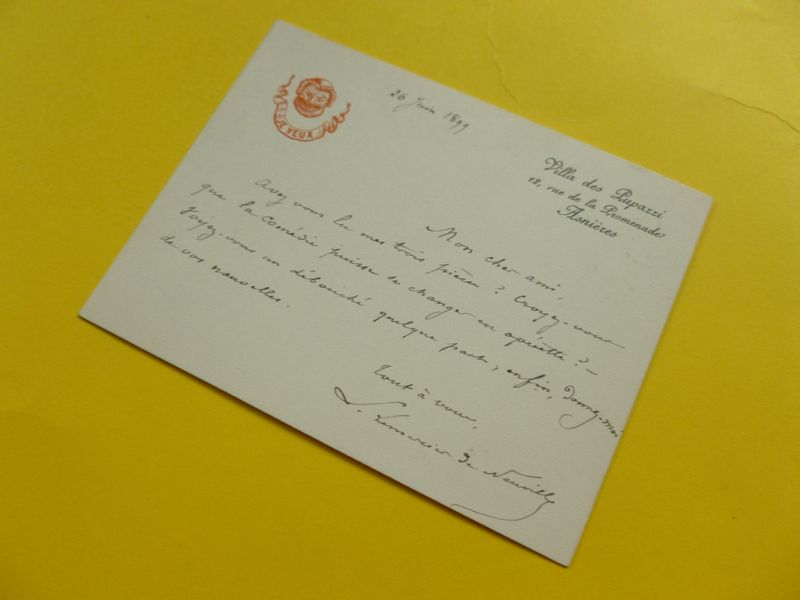 JE VEUX
26 Juin 1899
Villa des Pupazzi
12, rue de la Promenade
Asnières
Mon cher ami,
Avez vous lu mes trois pièces ? Croyez-vous
que la comédie puisse se changer en opérette ? –
Voyez-vous un débouché quelque part, enfin, donnez-moi
de vos nouvelles.
Tout à vous,
L. Lemercier de Neuville